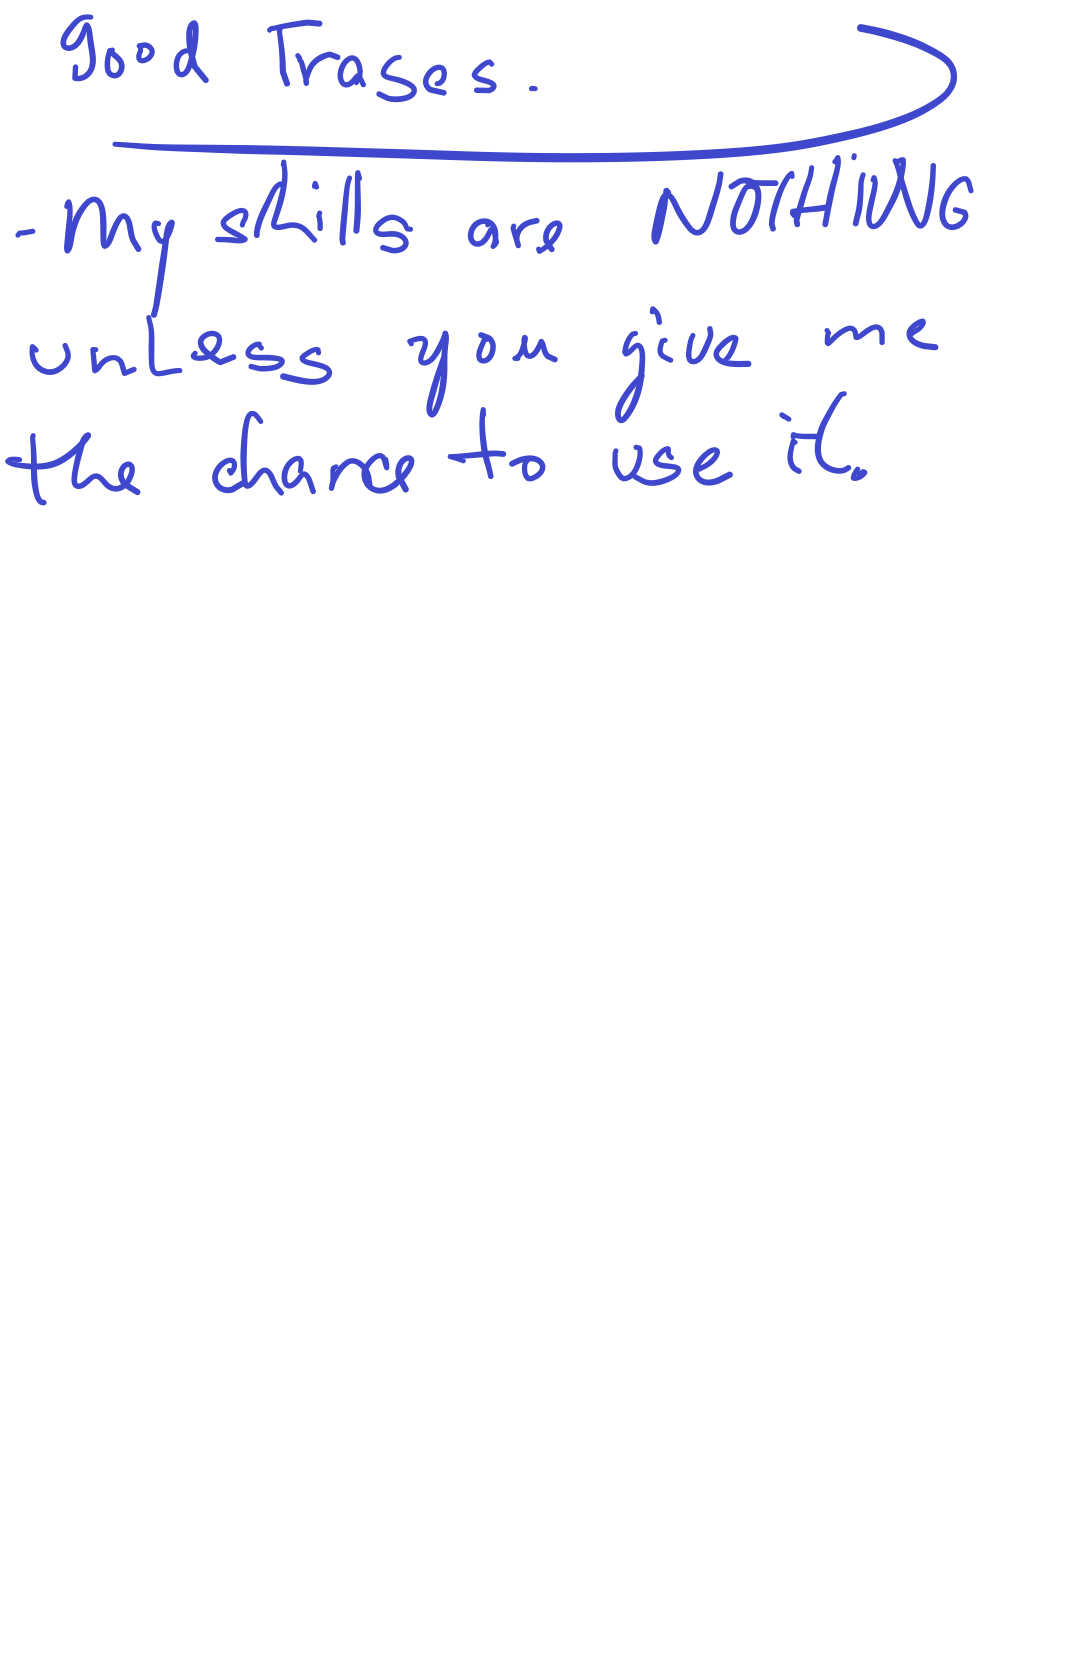 good Trases.
- My skills are NOTHiNG
unless you give me
the chance to use it.